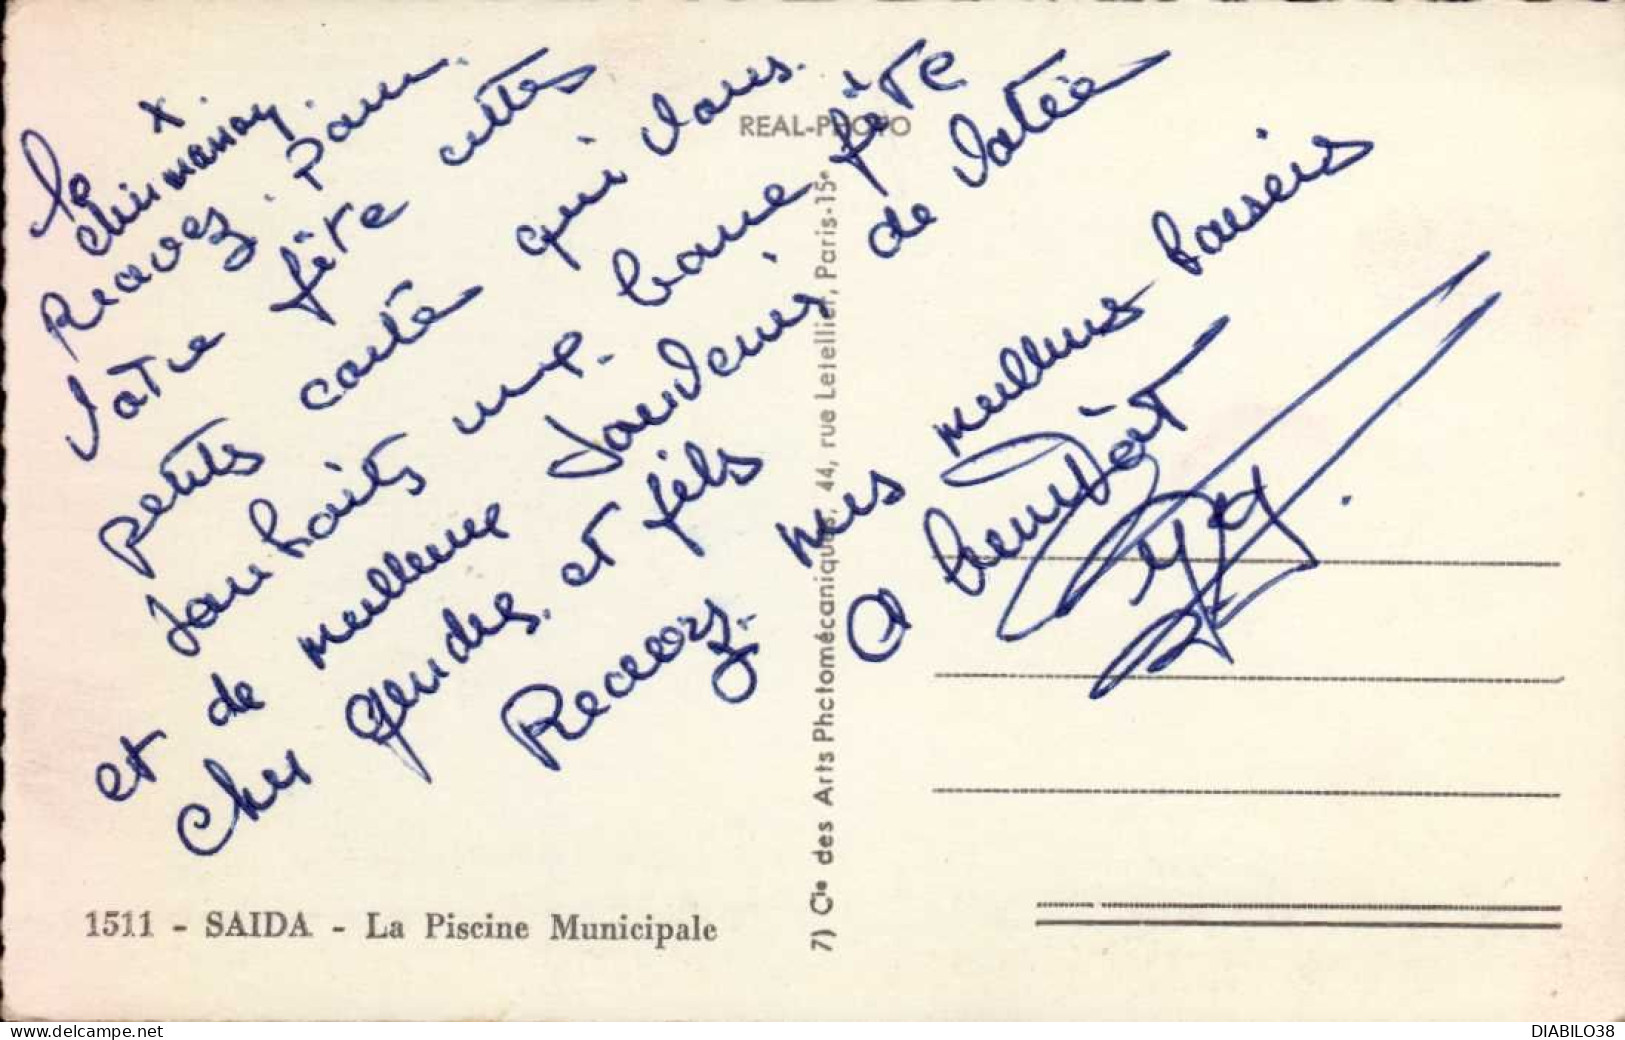 Recevez. Pour.
Votre fête cette
petite carte qui vous.
souhaite une. bonne fête
et de meilleur souvenir de Votée
cher gendre. et fils
Recevez. mes meilleurs baisers
A bientôt
REAL-PHOTO
7) Cie des Arts Photomécaniques, 44, rue Letellier, Paris-15e
1511 - SAIDA - La Piscine Municipale
https://www.delcampe.net
DIABILO38